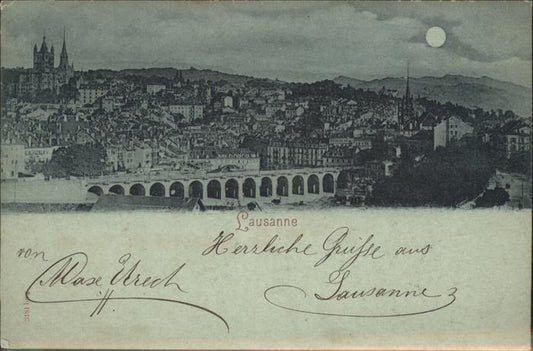 Lausanne
von
Max Urech
Herrliche Grüsse aus
Lausanne